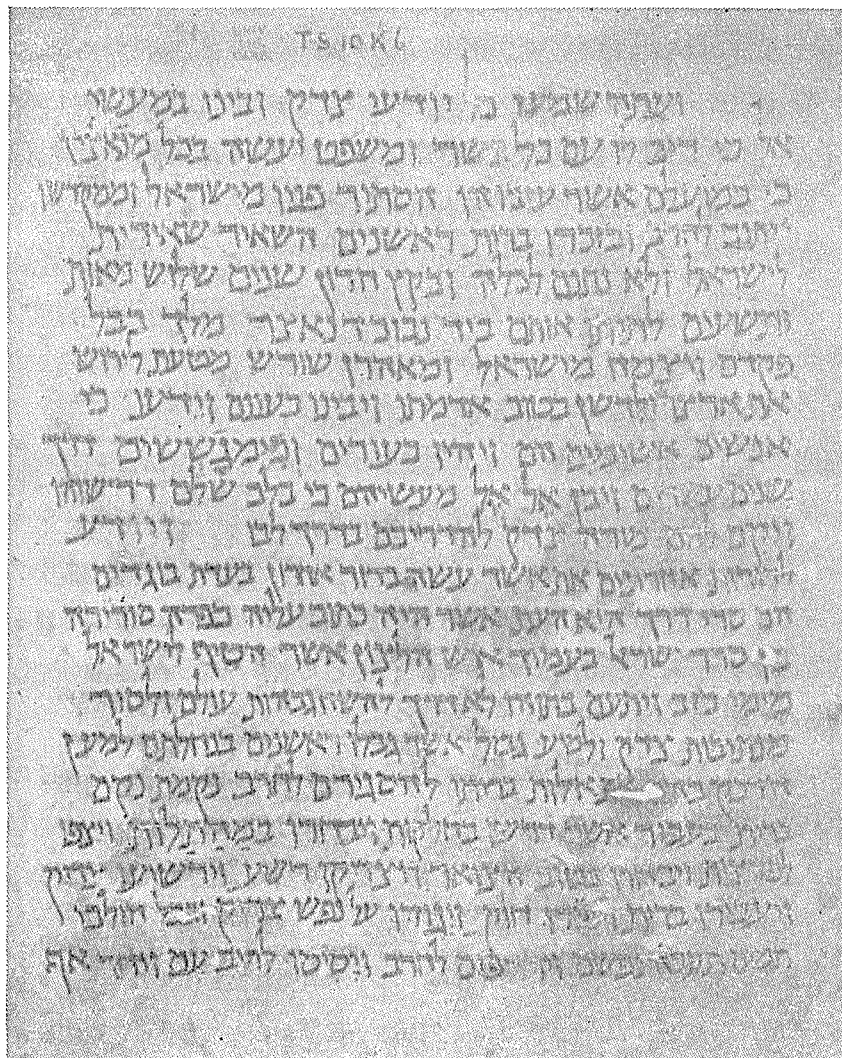 TS 10 K 6
ועתה שמעו כל יודעי צדק ובינו במעשי
אל כי ריב לו עם כל בשר ומשפט יעשה בכל מנאציו
כי במועלם אשר עזבוהו הסתיר פניו מישראל וממקדשו
ויתנם לחרב ובזכרו ברית ראשנים השאיר שאירית
לישראל ולא נתנם לכלה ובקץ חרון שנים שלוש מאות
ותשעים לתיתו אותם ביד נבוכדנאצר מלך בבל
פקדם ויצמח מישראל ומאהרן שורש מטעת לירוש
את ארצו ולדשן בטוב אדמתו ויבינו בעונם וידעו כי
אנשים אשימים הם ויהיו כעורים וכימגששים דרך
שנים עשרים ויבן אל אל מעשיהם כי בלב שלם דרשוהו
ויקם להם מורה צדק להדריכם בדרך לבו ויודע
לדורות אחרונים את אשר עשה בדור אחרון בעדת בוגדים
הם סרי דרך היא העת אשר היה כתוב עליה כפרה סורירה
כן סרר ישראל בעמוד איש הלצון אשר הטיף לישראל
מימי כזב ויתעם בתוהו לא דרך להשח גבהות עולם ולסור
מנתיבות צדק ולסיע גבול אשר גבלו ראשנים בנחלתם למען
הדבק בהם אלות בריתו להסגירם לחרב נקמת נקם
ברית בעבור אשר דרשו בחלקות ויבחרו במהתלות ויצפו
לפרצות ויבחרו בטוב הצואר ויצדיקו רשע וירשיעו צדיק
ויעבירו ברית ויפירו חוק ויגודו על נפש צדיק ובכל הולכי
תמים תעבה נפשם וירדפום לחרב ויסיסו לריב עם ויחר אף